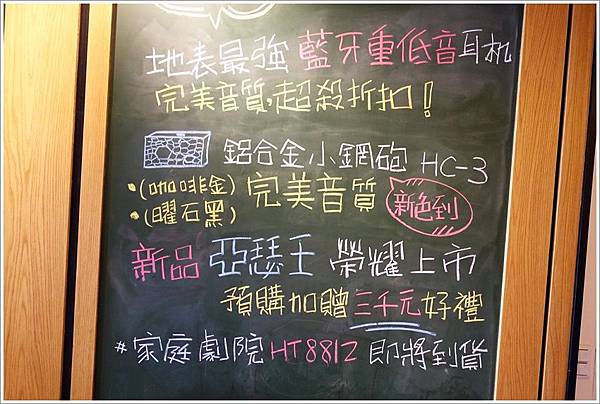 地表最強 藍牙重低音耳机
完美音質,超殺折扣!
鋁合金小鋼砲 HC-3
•(咖啡金) 完美音質 新色到
•(曜石黑)
新品 亞瑟王 榮耀上市
預購加贈三千元好禮
#家庭劇院 HT8812 即將到貨